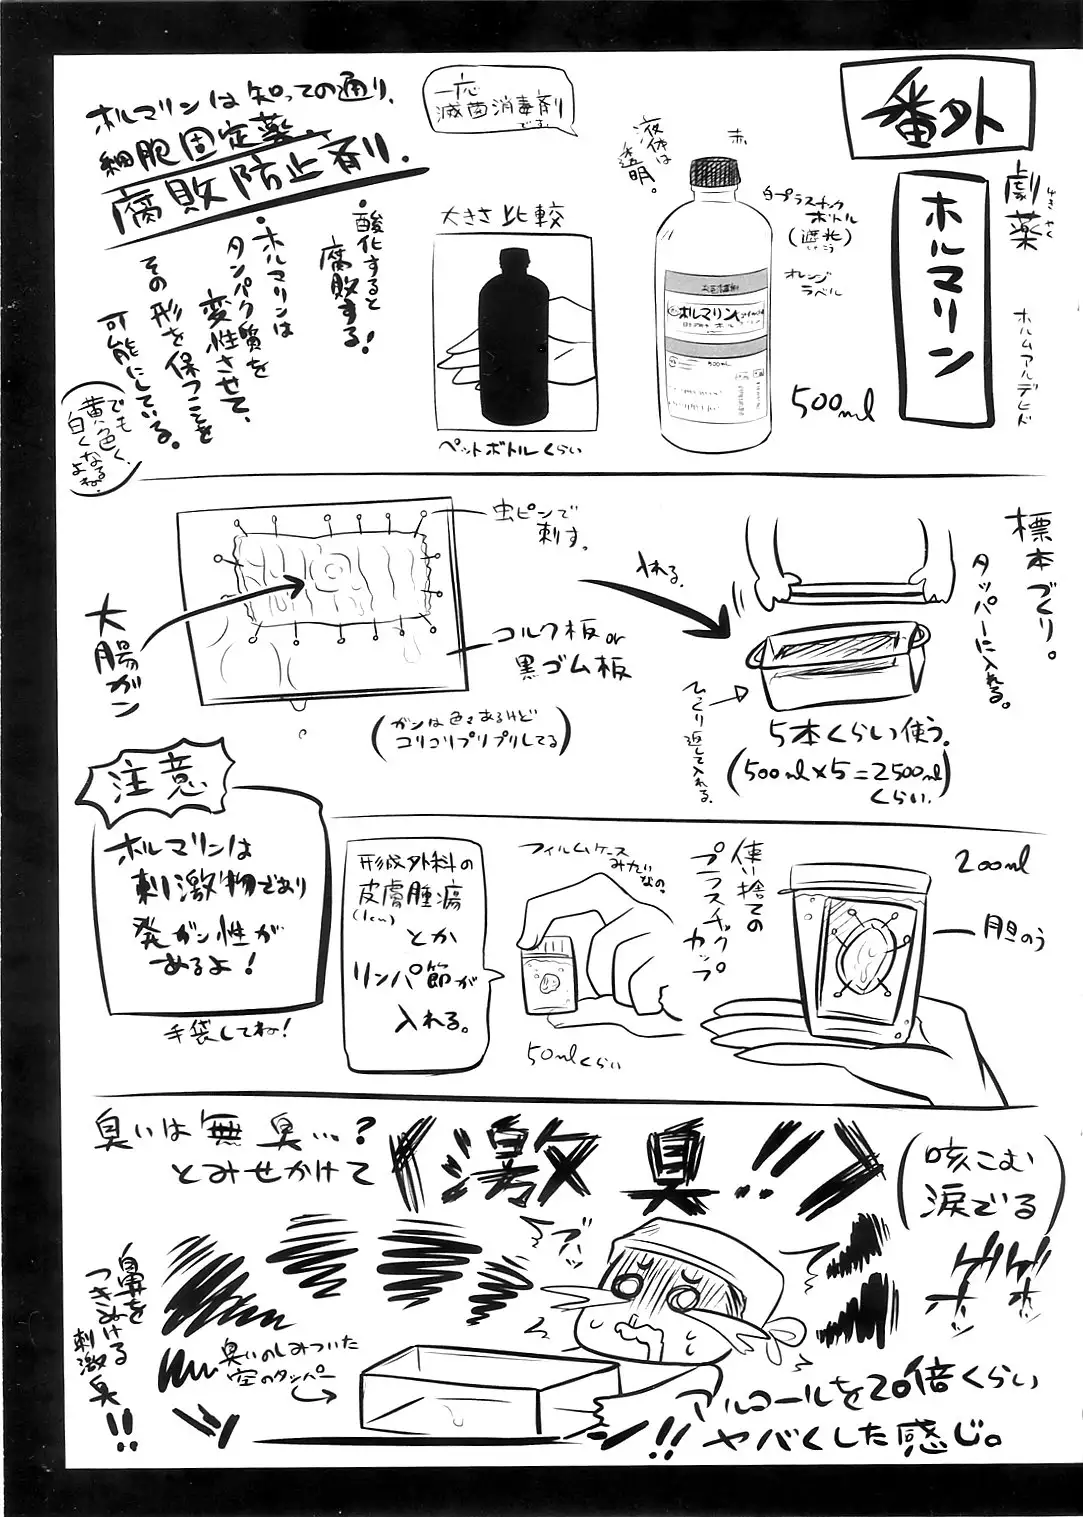 番外
劇薬
げきやく
ホルマリン
ホルムアルデヒド
赤
液体は
透明。
白プラスチック
ボトル
(遮光)
しゃこう
オレンジ
ラベル
ホルマリン
500mL
500ml
一応
滅菌消毒剤
です。
大きさ比較
ペットボトルくらい
ホルマリンは知っての通り、
細胞固定薬
腐敗防止剤。
・酸化すると
腐敗する！
・ホルマリンは
タンパク質を
変性させて、
その形を保つことを
可能にしている。
でも
黄色く、
白くなる
よね。
標本づくり。
タッパーに入れる。
入れる。
ひっくり返して入れる。
5本くらい使う。
(500ml×5=2500ml)
くらい。
虫ピンで
刺す。
コルク板or
黒ゴム板
大腸ガン
(ガンは色々あるけど
コリコリプリプリしてる)
注意
ホルマリンは
刺激物であり
発ガン性が
あるよ！
手袋してね！
200ml
胆のう
使い捨ての
プラスチック
カップ
フィルムケース
みたいなの。
50mlくらい
形成外科の
皮膚腫瘍
(1cm)
とか
リンパ節が
入れる。
臭いは無臭…？
とみせかけて
激臭!!
(咳こむ
涙でる)
ゲホッ
ゲホッ
ブッ
鼻を
つきぬける
刺激臭!!
臭いのしみついた
空のタッパー
アルコールを20倍くらい
ヤバくした感じ。